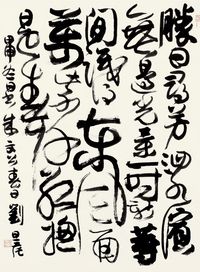 勝日尋芳泗水濱
無邊光景一時新等
閒識得東風面
萬紫千紅總
是春
朱文公春日劉